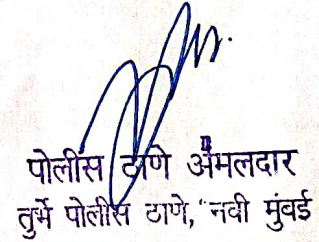 पोलीस ठाणे अंमलदार
तुर्भे पोलीस ठाणे, नवी मुंबई